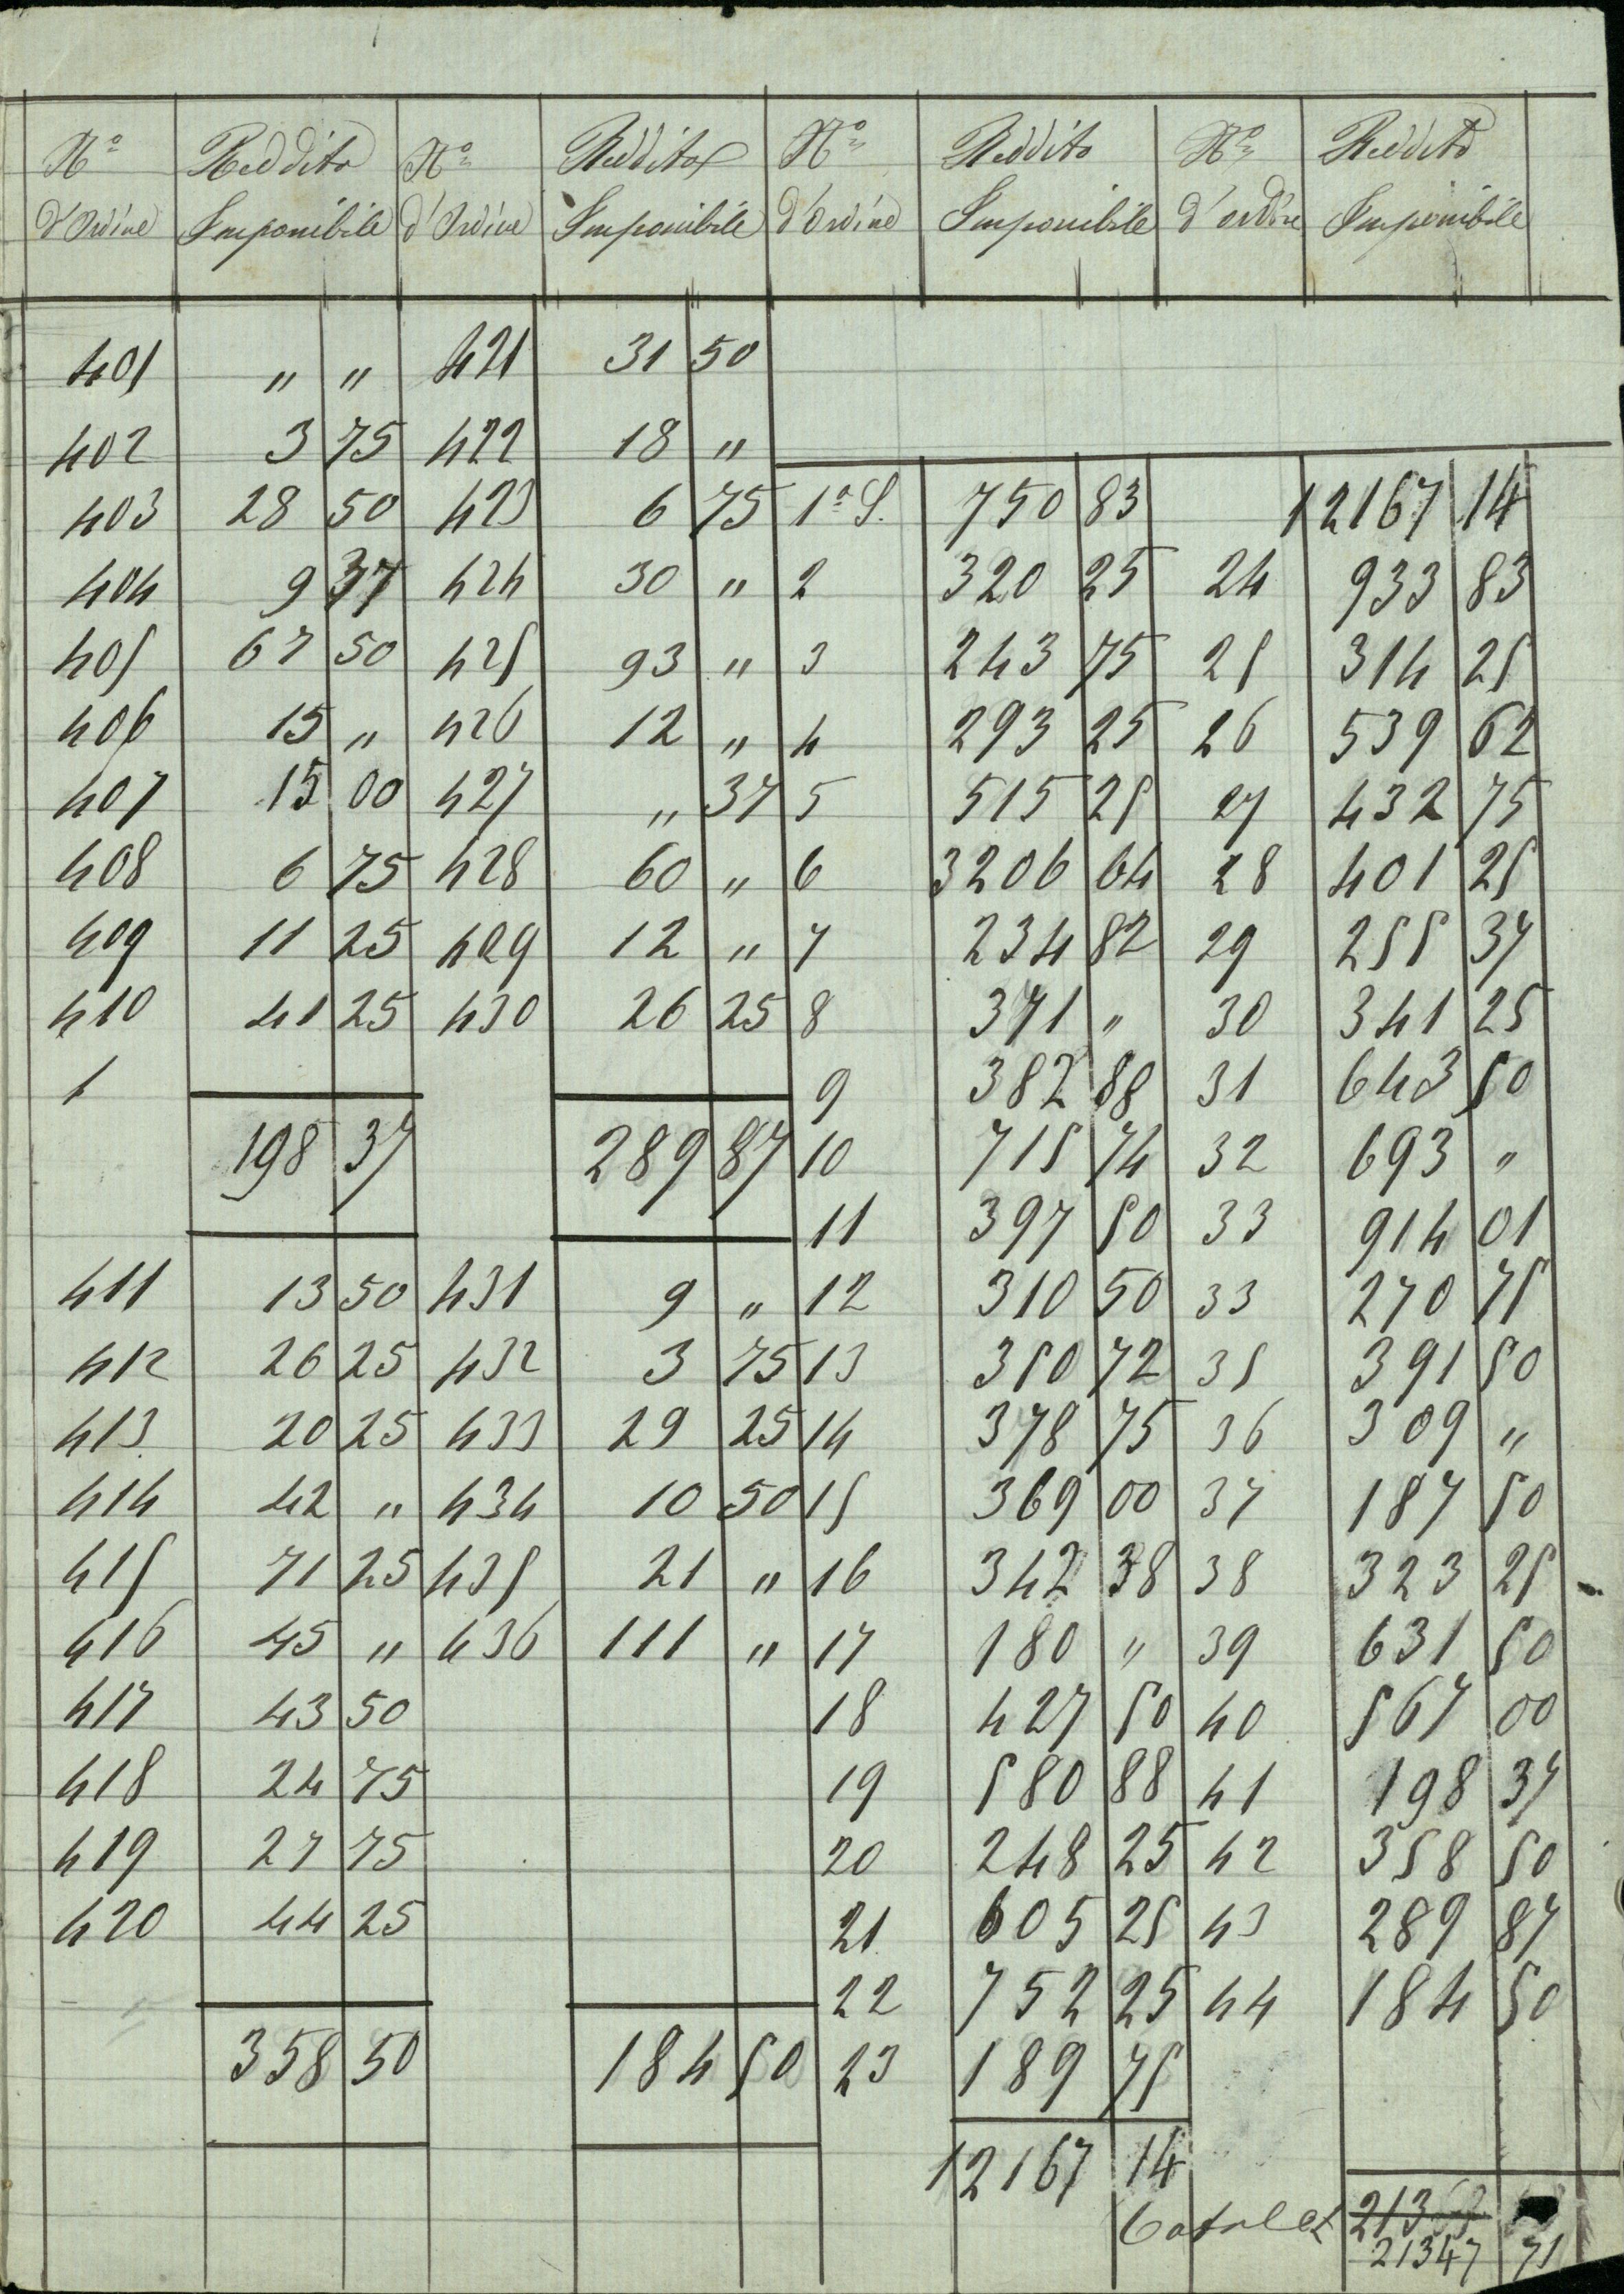 Nº Reddito Nº Reddito Nº Reddito Nº Reddito
d'Ordine Imponibile d'Ordine Imponibile d'Ordine Imponibile d'ordine Imponibile
401 " " 421 31 50
402 3 75 422 18 "
403 28 50 423 6 75 1ª S. 750 83 12167 14
404 9 37 424 30 " 2 320 25 24 933 83
405 67 50 425 93 " 3 243 75 25 314 25
406 15 " 426 12 " 4 293 25 26 539 62
407 15 00 427 " 37 5 515 25 27 432 75
408 6 75 428 60 " 6 3206 64 28 401 25
409 11 25 429 12 " 7 234 82 29 255 37
410 41 25 430 26 25 8 371 " 30 341 25
1 9 382 88 31 643 50
198 37 289 87 10 715 74 32 693 "
11 397 50 33 914 01
411 13 50 431 9 " 12 310 50 33 270 75
412 26 25 432 3 75 13 350 72 35 391 50
413 20 25 433 29 25 14 378 75 36 309 "
414 42 " 434 10 50 15 369 00 37 187 50
415 71 25 435 21 " 16 342 38 38 323 25
416 45 " 436 111 " 17 180 " 39 631 50
417 43 50 18 427 50 40 567 00
418 24 75 19 580 88 41 198 37
419 27 75 20 248 25 42 358 50
420 44 25 21 605 25 43 289 87
22 752 25 44 184 50
358 50 184 50 23 189 75
12167 14
21347 71